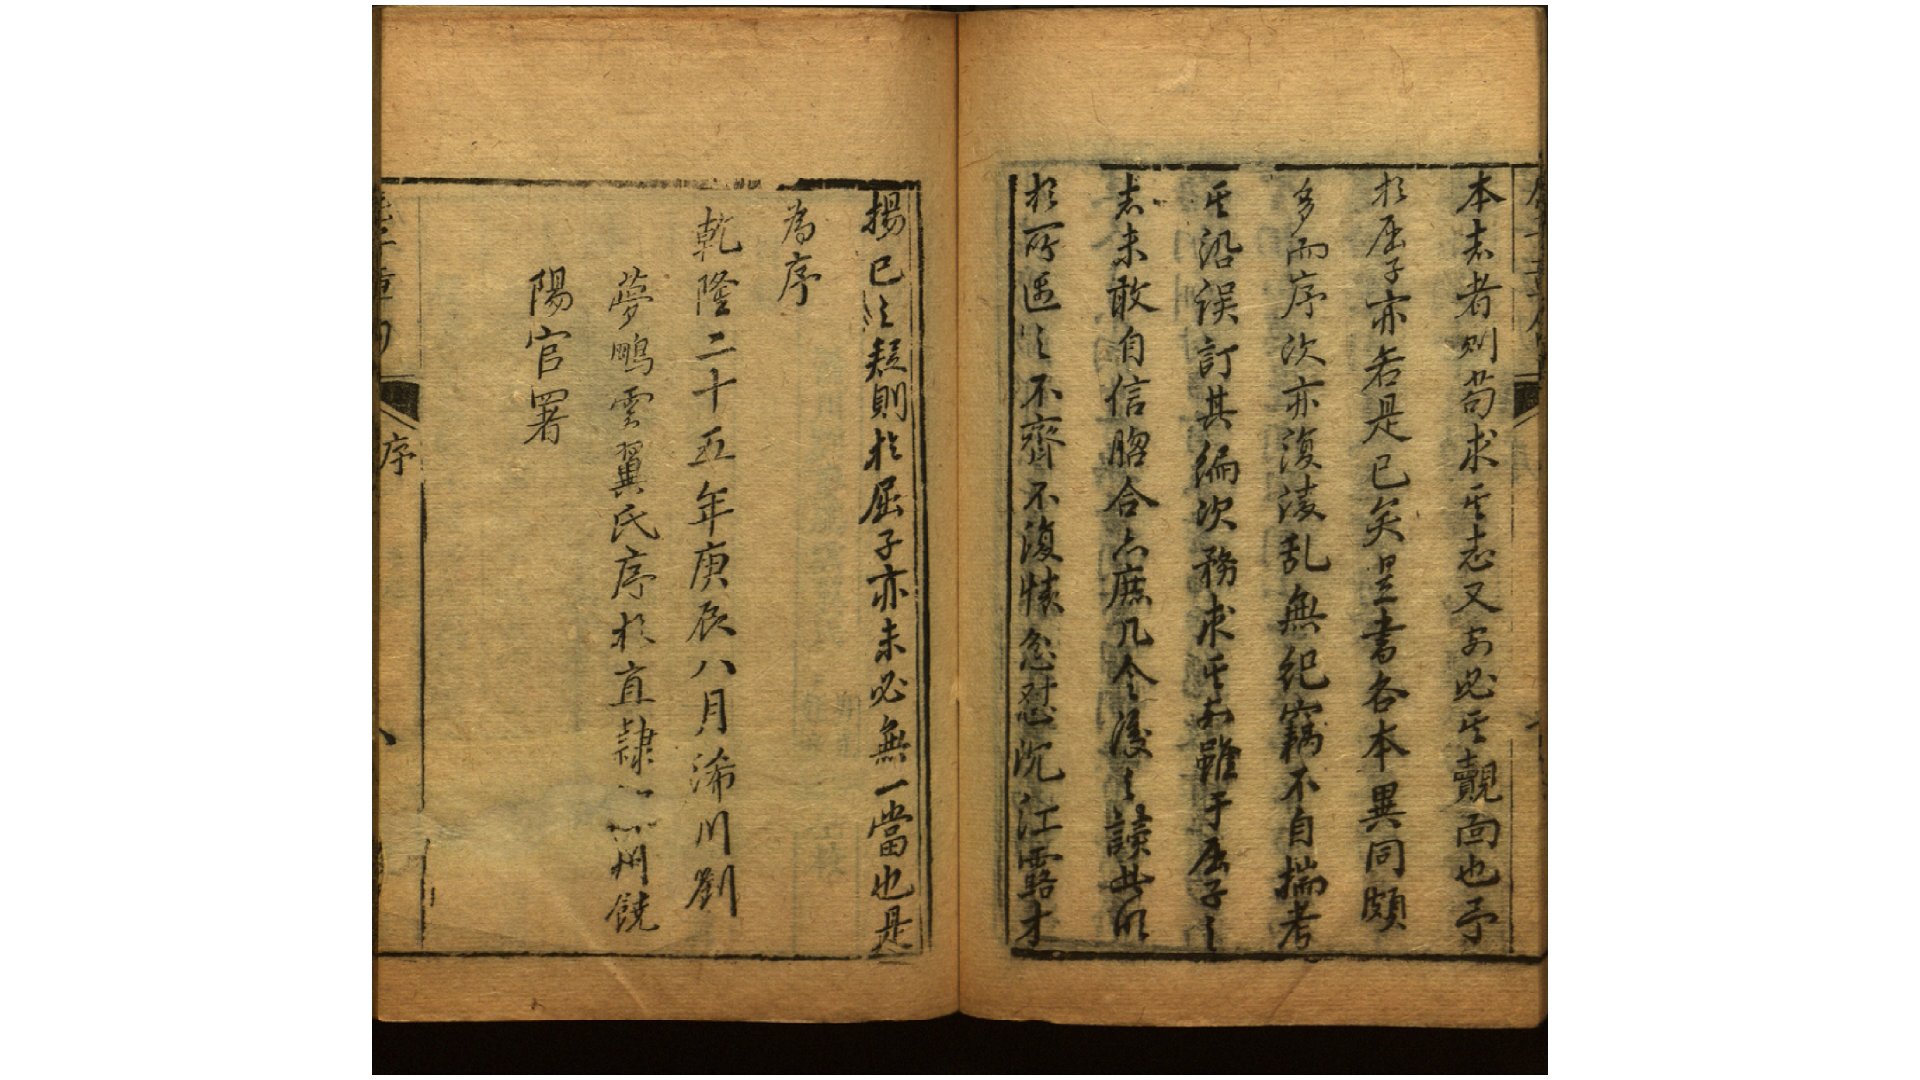 本志者則苟求其志又安必其覿面也予
於屈子亦若是已矣是書各本異同頗
多而序次亦復淩亂無紀竊不自揣考
其沿誤訂其編次務求其安雖于屈子之
志未敢自信脗合亦庶几令後之讀此以
於所遇之不齊不復懐忿懟沉江露才
揚已之疑則於屈子亦未必無一當也是
為序
乾隆二十五年庚辰八月浠川劉
夢鵬雲翼氏序於直隷州饒
陽官署
章句
序
八